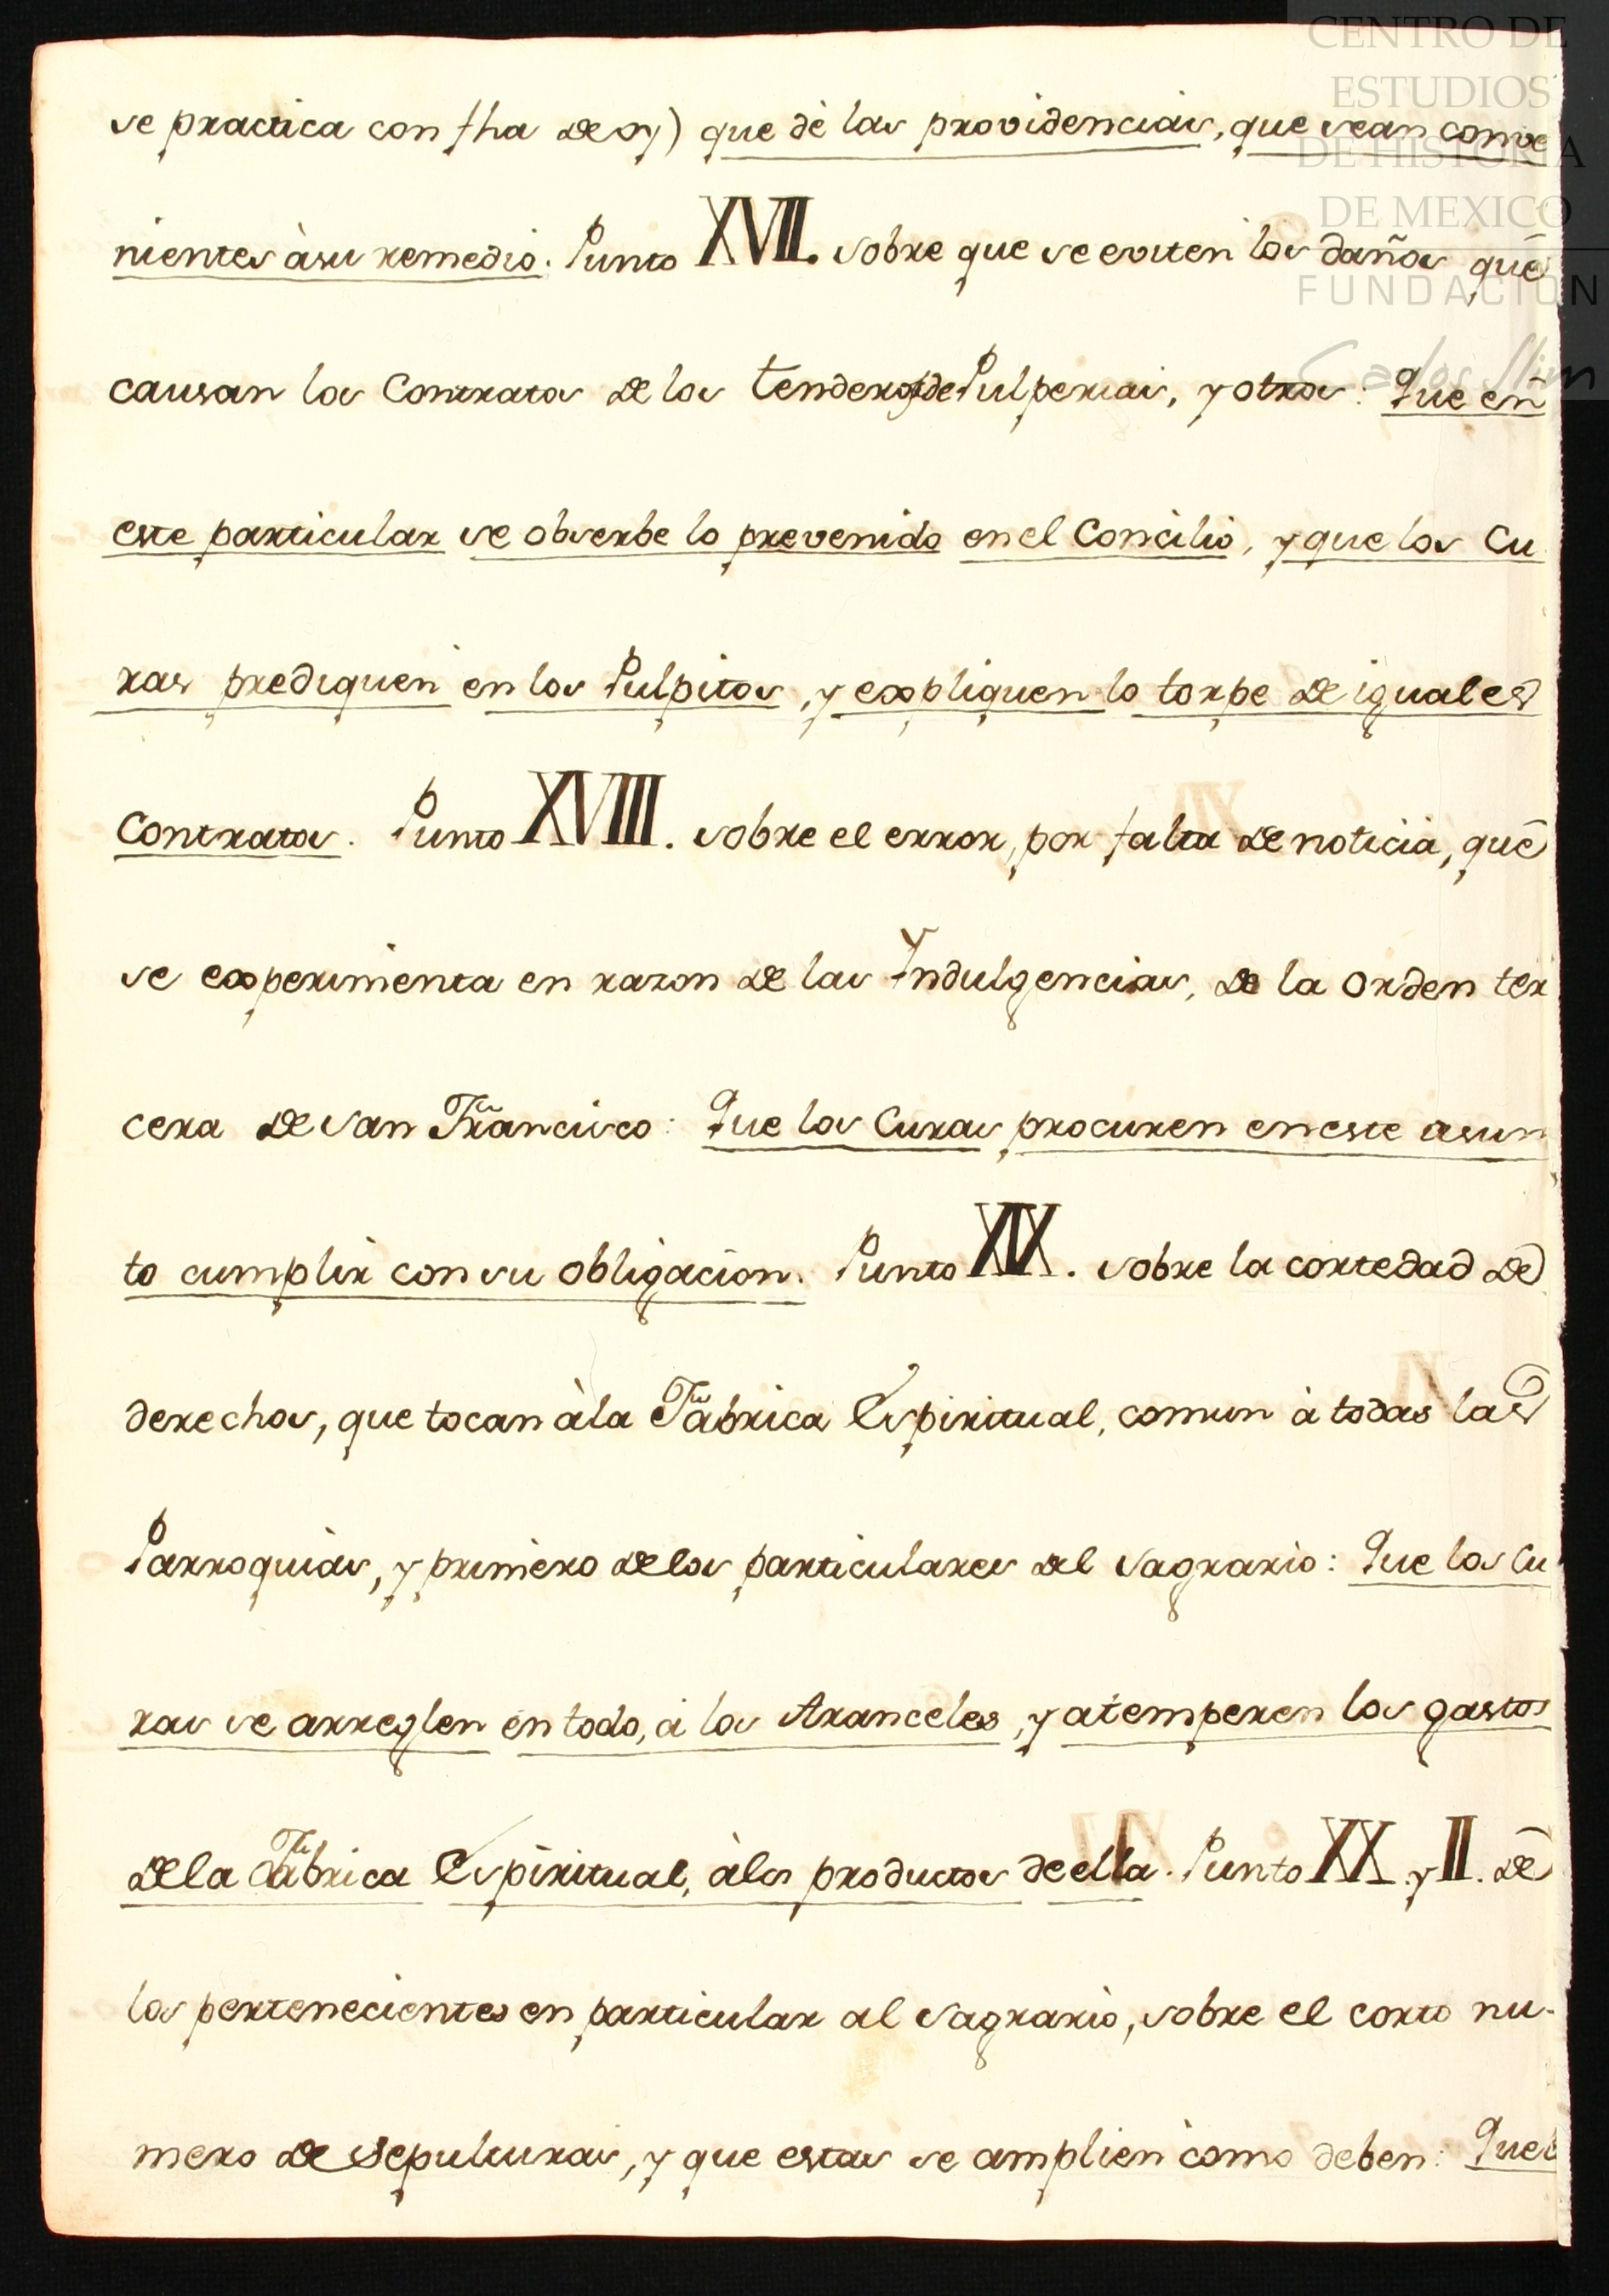 CENTRO DE
ESTUDIOS
DE HISTORIA
DE MEXICO
FUNDACIÓN
Carlos Slim
se practica con fha de oy) que dè las providencias, que sean conve
nientes àsu remedio. Punto XVII. sobre que se eviten los daños que
causan los Contratos de los tenderos de Pulperias, y otros: Que en
este particular se obserbe lo prevenido en el Concilio, y que los Cu
ras prediquen en los Pulpitos, y expliquen lo torpe de iguales
Contratos. Punto XVIII. sobre el error, por falta de noticia, que
se experimenta en razon de las Yndulgencias, de la Orden ter
cera de San Francisco: Que los Curas procuren en este asun
to cumplir con su obligacion. Punto XIX. sobre la cortedad de
derechos, que tocan àla Fabrica Espiritual, comun à todas las
Parroquias, y primero delos particulares del Sagrario: Que los Cu
ras se arreglen en todo, à los Aranceles, y atemperen los gastos
dela Fabrica Espiritual, àlos productos de ella. Punto XX. y II. de
los pertenecientes en particular al Sagrario, sobre el corto nu-
mero de Sepulturas, y que estas se amplien como deben: Que